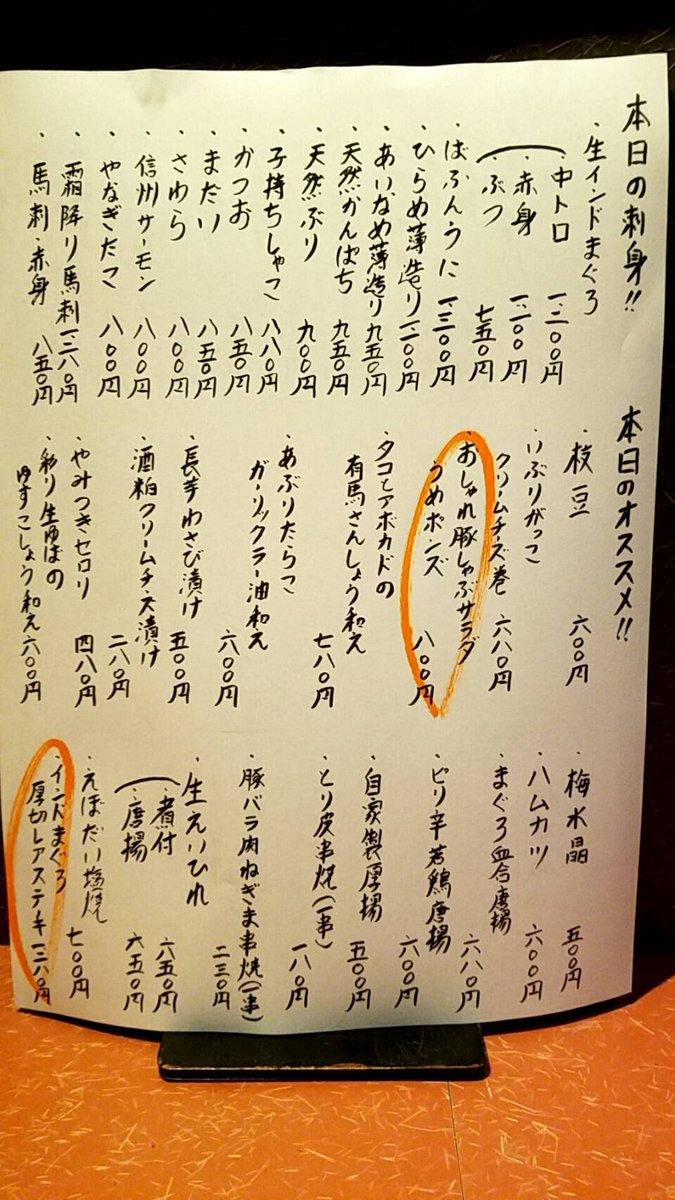 本日の刺身!!
・生インドまぐろ
・中トロ 一、三〇〇円
・赤身 一、二〇〇円
・ぶつ 七五〇円
・ばふんうに 一、三〇〇円
・ひらめ薄造り 一、二〇〇円
・あいなめ薄造り 九五〇円
・天然かんぱち 九五〇円
・天然ぶり 九〇〇円
・子持ちしゃこ 八八〇円
・かつお 八五〇円
・まだい 八五〇円
・さわら 八〇〇円
・信州サーモン 八〇〇円
・やなぎだこ 八〇〇円
・霜降り馬刺 一、二八〇円
・馬刺・赤身 八五〇円
本日のオススメ!!
・枝豆 六〇〇円
・いぶりがっこ
クリームチーズ巻 六八〇円
・おしゃれ豚しゃぶサラダ
うめポンズ 八〇〇円
・タコとアボカドの
有馬さんしょう和え 七八〇円
・あぶりたらこ
ガーリックラー油和え 六〇〇円
・長芋わさび漬け 五〇〇円
・酒粕クリームチーズ漬け 二八〇円
・やみつきセロリ 四八〇円
・彩り生ゆばの
ゆずこしょう和え 六〇〇円
・梅水晶 五〇〇円
・ハムカツ 六〇〇円
・まぐろ血合唐揚 六八〇円
・ピリ辛若鶏唐揚 六〇〇円
・自家製厚揚 五〇〇円
・とり皮串焼(一串) 一八〇円
・豚バラ肉ねぎま串焼(一串) 二三〇円
・生えいひれ
・煮付 六五〇円
・唐揚 六五〇円
・えぼだい塩焼 七〇〇円
・インドまぐろ
厚切レアステーキ 一、二八〇円